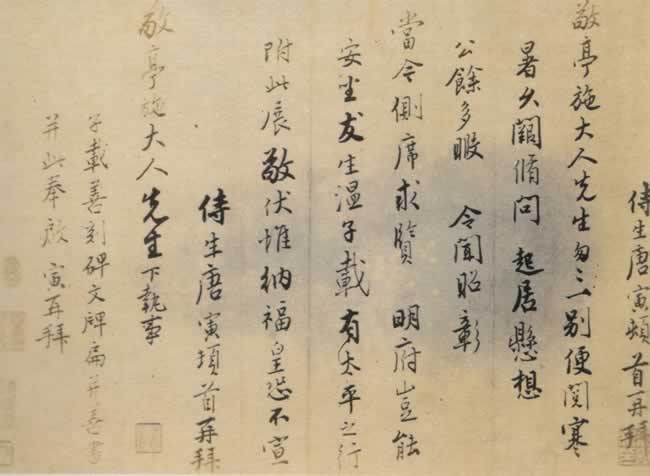 侍生唐寅頓首再拜
敬亭施大人先生匆匆一别便閱寒
暑久闊脩問 起居懸想
公餘多暇 令聞昭彰
當今側席求賢 明府豈能
安坐友生溫子載有太平之行
附此展敬伏惟納福皇恐不宣
侍生唐寅頓首再拜
敬亭施大人先生下執事
子載善刻碑文牌扁并善書
并此奉啟 寅再拜